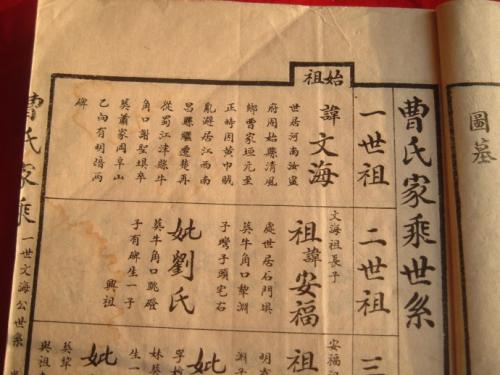 圖墓
曹氏家乘世系
始祖
一世祖
諱文海
世居河南汝寧
府固始縣清風
鄉曹家垣元至
正時因黃巾賊
亂避居江西南
昌縣繼遷楚再
從蜀江津縣牛
角口謝聖垻卒
葬蕭家岡阜山
乙向有明增兩
碑
二世祖
文海祖長子
祖諱安福
處世居石門垻
葬牛角口犁淵
子灣子頭宅右
妣劉氏
葬牛角口跳磴
子有碑生一子
興祖
三
安福
祖
妣
生一
妣
葬
興祖
曹氏家乘
一世文海公世系